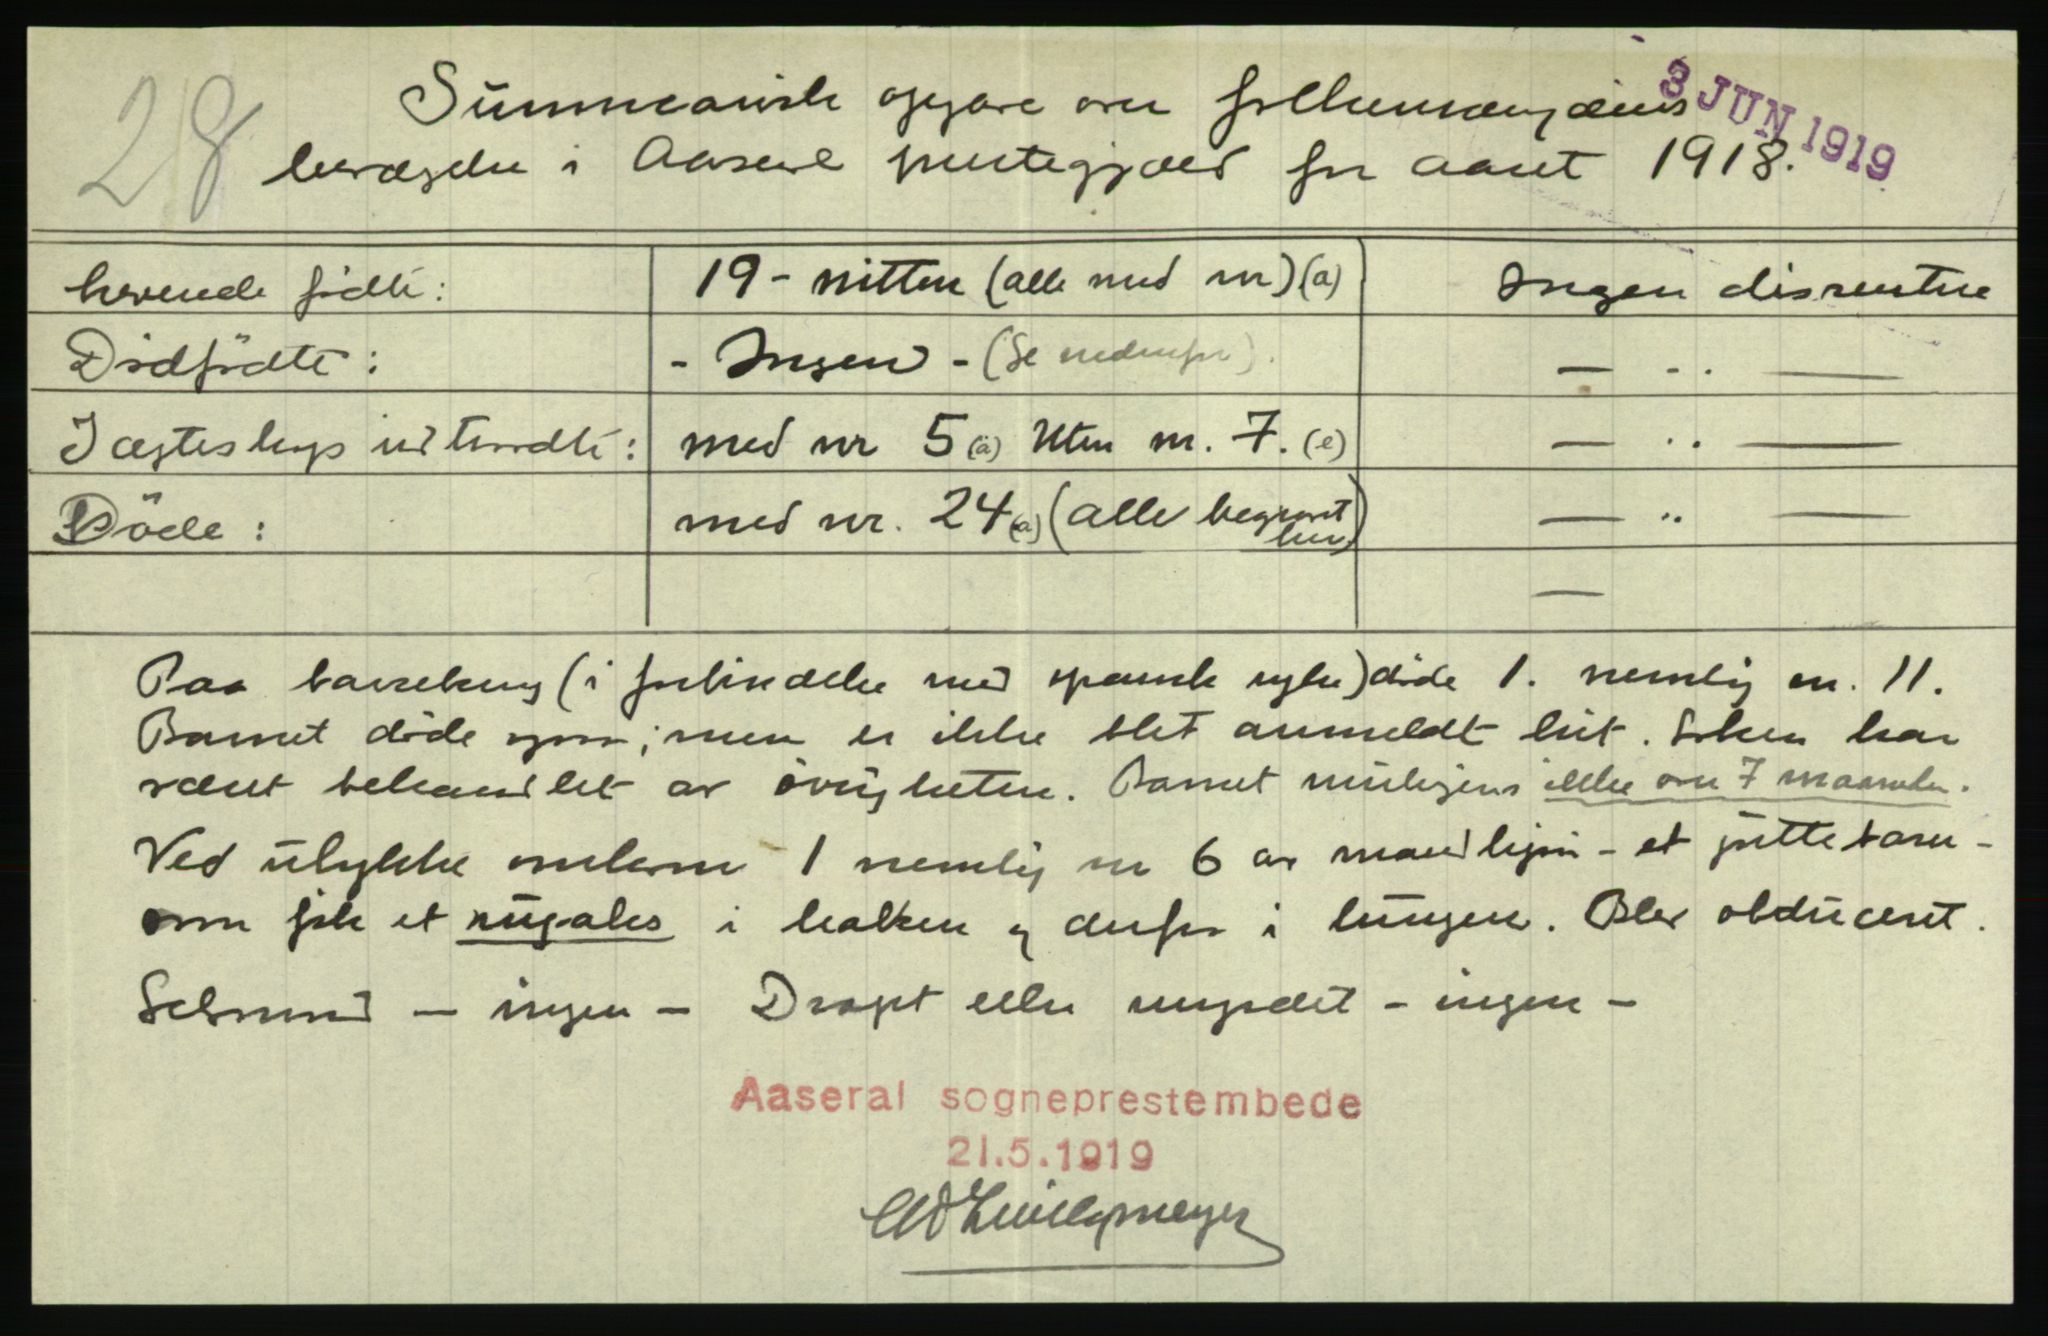 28
3 JUN 1919
Summarisk opgave over folkemængdens
bevægelse i Aaseral prestegjæld for aaret 1918.
Levende födte: 19 - nitten (alle med nr) (a) Ingen dissentere
Dödfödte: - Ingen - (Se nedenfor). — " —
I ægteskap indtraadte: med nr 5 (a) Uten nr. 7. (e) — " —
Döde: med nr. 24 (a) (alle begravet her) — " —
—
Paa barseleng (i forbindelse med spansk syke) döde 1. nemlig nr. 11.
Barnet döde ogsaa; men er ikke blet anmeldt hit. Saken har
været behandlet av övrigheten. Barnet muligens ikke over 7 maaneder.
Ved ulykke omkom 1 nemlig nr 6 av mandkjön - et guttebarn -
som fik et rugaks i halsen og derfra i lungen. Blev obduceret.
Selvmord — ingen — Dræpt eller myrdet - ingen -
Aaseral sogneprestembede
21.5.1919